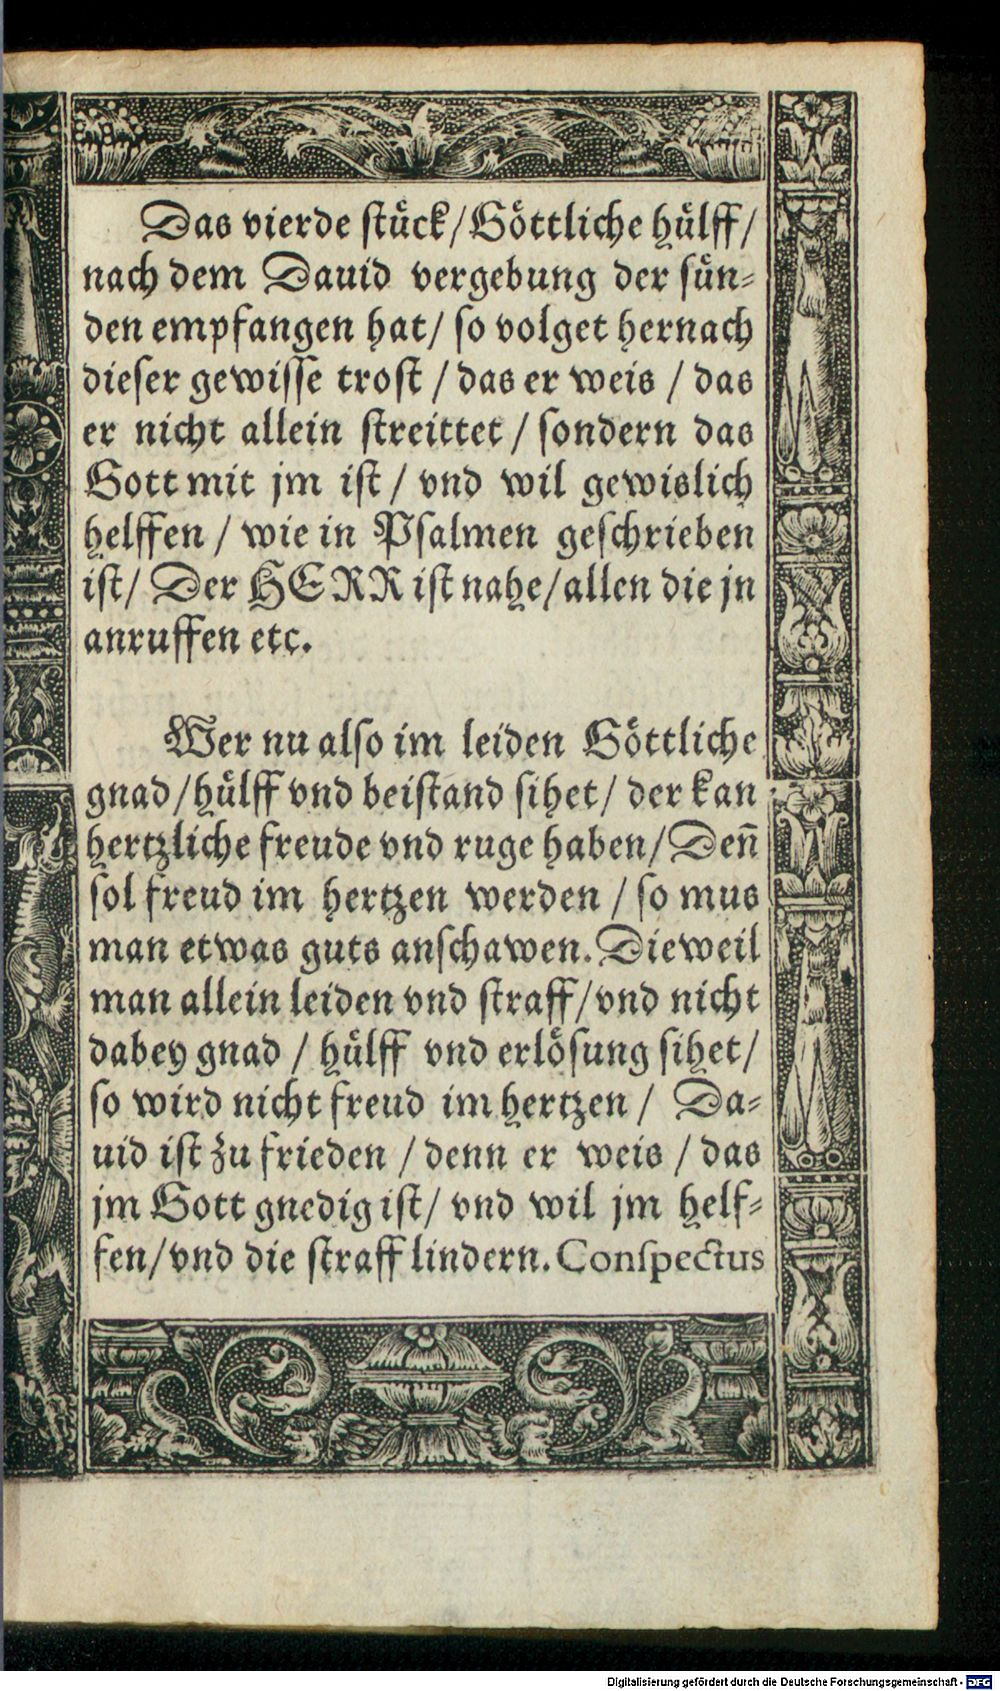 Das vierde stück/Göttliche hülff/
nach dem Dauid vergebung der sün-
den empfangen hat/ so volget hernach
dieser gewisse trost / das er weis / das
er nicht allein streittet / sondern das
Gott mit jm ist / vnd wil gewislich
helffen / wie in Psalmen geschrieben
ist/ Der HERR ist nahe/allen die jn
anruffen etc.
Wer nu also im leiden Göttliche
gnad/hülff vnd beistand sihet/ der kan
hertzliche freude vnd ruge haben/ Deñ
sol freud im hertzen werden / so mus
man etwas guts anschawen. Dieweil
man allein leiden vnd straff/vnd nicht
dabey gnad / hülff vnd erlösung sihet/
so wird nicht freud im hertzen / Da-
uid ist zu frieden / denn er weis / das
jm Gott gnedig ist/ vnd wil jm helf-
fen/vnd die straff lindern. Conspectus
Digitalisierung gefördert durch die Deutsche Forschungsgemeinschaft - DFG